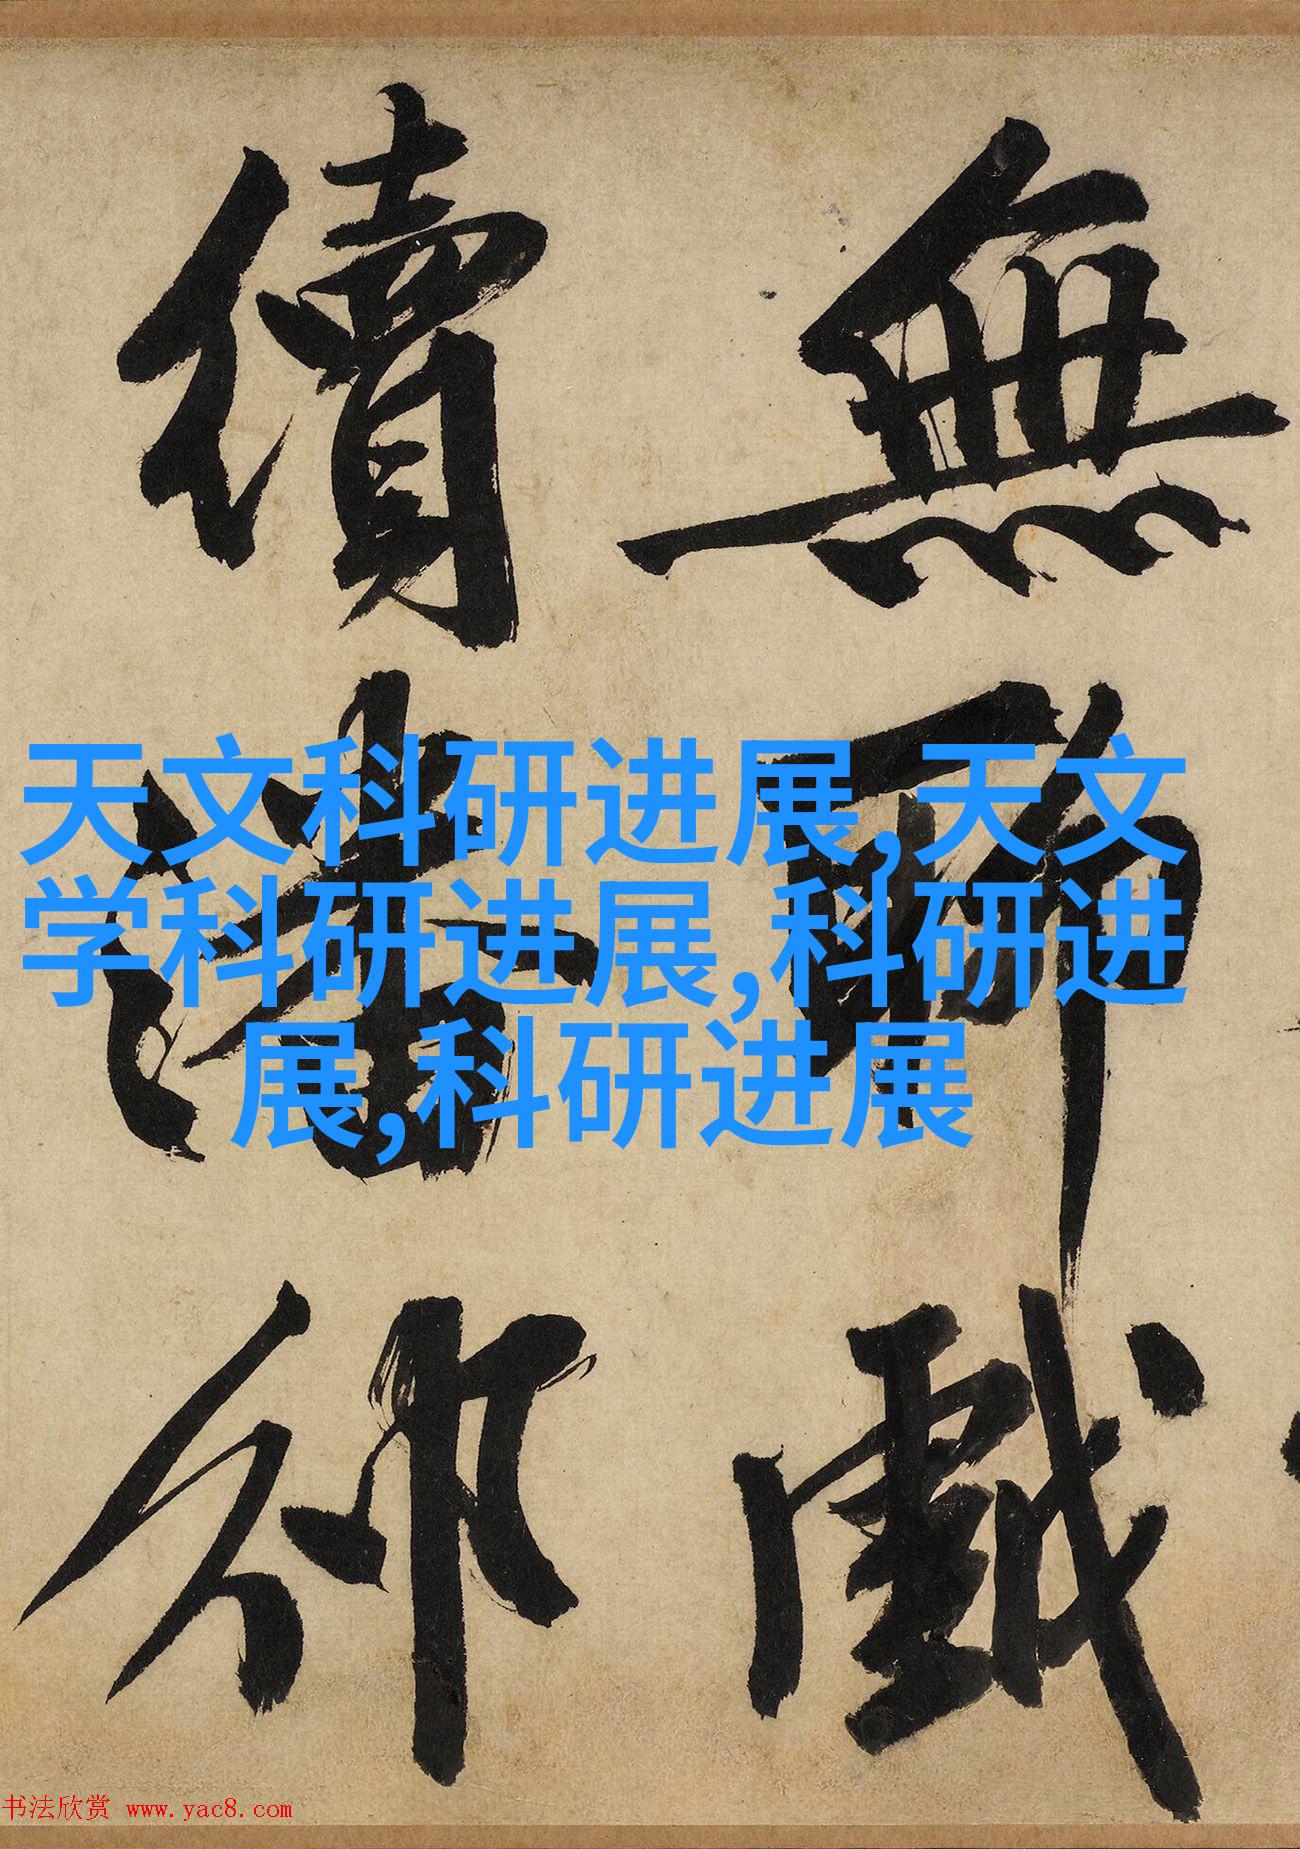 無聊戲
續書卻
天文科研进展,天文
学科研进展,科研进
展,科研进展
书法欣赏 www.yac8.com